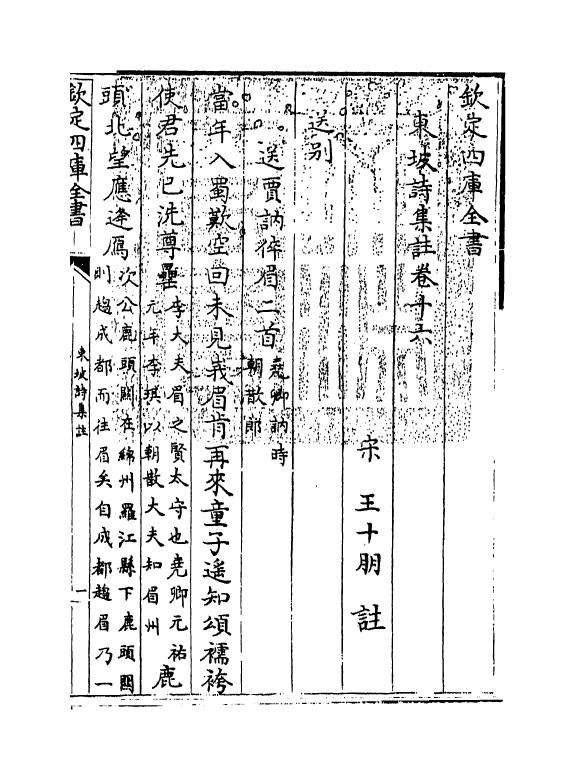 欽定四庫全書
東坡詩集註卷十六
宋 王十朋 註
送別
送賈訥倅眉二首
堯卿訥時
朝散郎
當年入蜀歎空回未見峩眉肯再來童子遙知頌襦袴
使君先已洗尊罍
李大夫眉之賢太守也堯卿元祐
元年李琪以朝散大夫知眉州
鹿
頭北望應逢鴈
次公鹿頭關在綿州羅江縣下鹿頭關
則趨成都而往眉矣自成都趨眉乃一
欽定四庫全書
東坡詩集註
一